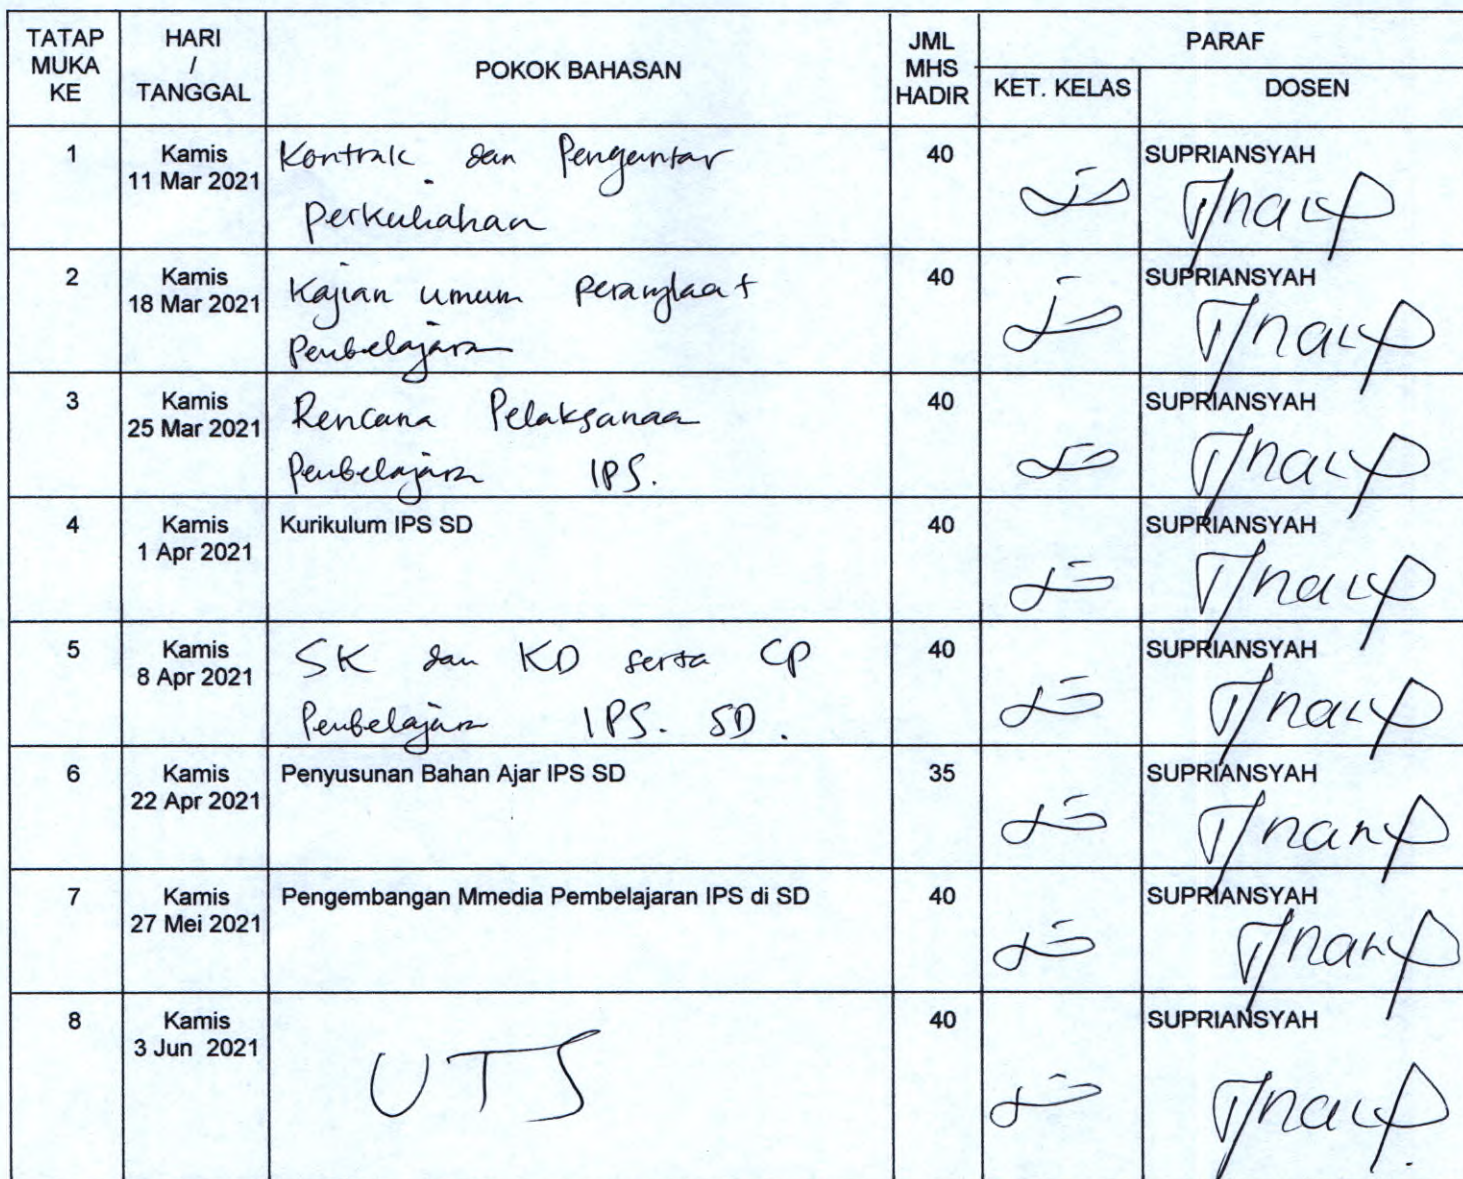 TATAP MUKA KE
HARI / TANGGAL
POKOK BAHASAN
JML MHS HADIR
PARAF
KET. KELAS
DOSEN
1
Kamis
11 Mar 2021
Kontrak dan Pengantar
perkuliahan
40
SUPRIANSYAH
2
Kamis
18 Mar 2021
Kajian umum perangkat
Pembelajaran
40
SUPRIANSYAH
3
Kamis
25 Mar 2021
Rencana Pelaksanaan
Pembelajaran IPS.
40
SUPRIANSYAH
4
Kamis
1 Apr 2021
Kurikulum IPS SD
40
SUPRIANSYAH
5
Kamis
8 Apr 2021
SK dan KD serta CP
Pembelajaran IPS. SD.
40
SUPRIANSYAH
6
Kamis
22 Apr 2021
Penyusunan Bahan Ajar IPS SD
35
SUPRIANSYAH
7
Kamis
27 Mei 2021
Pengembangan Mmedia Pembelajaran IPS di SD
40
SUPRIANSYAH
8
Kamis
3 Jun 2021
UTS
40
SUPRIANSYAH